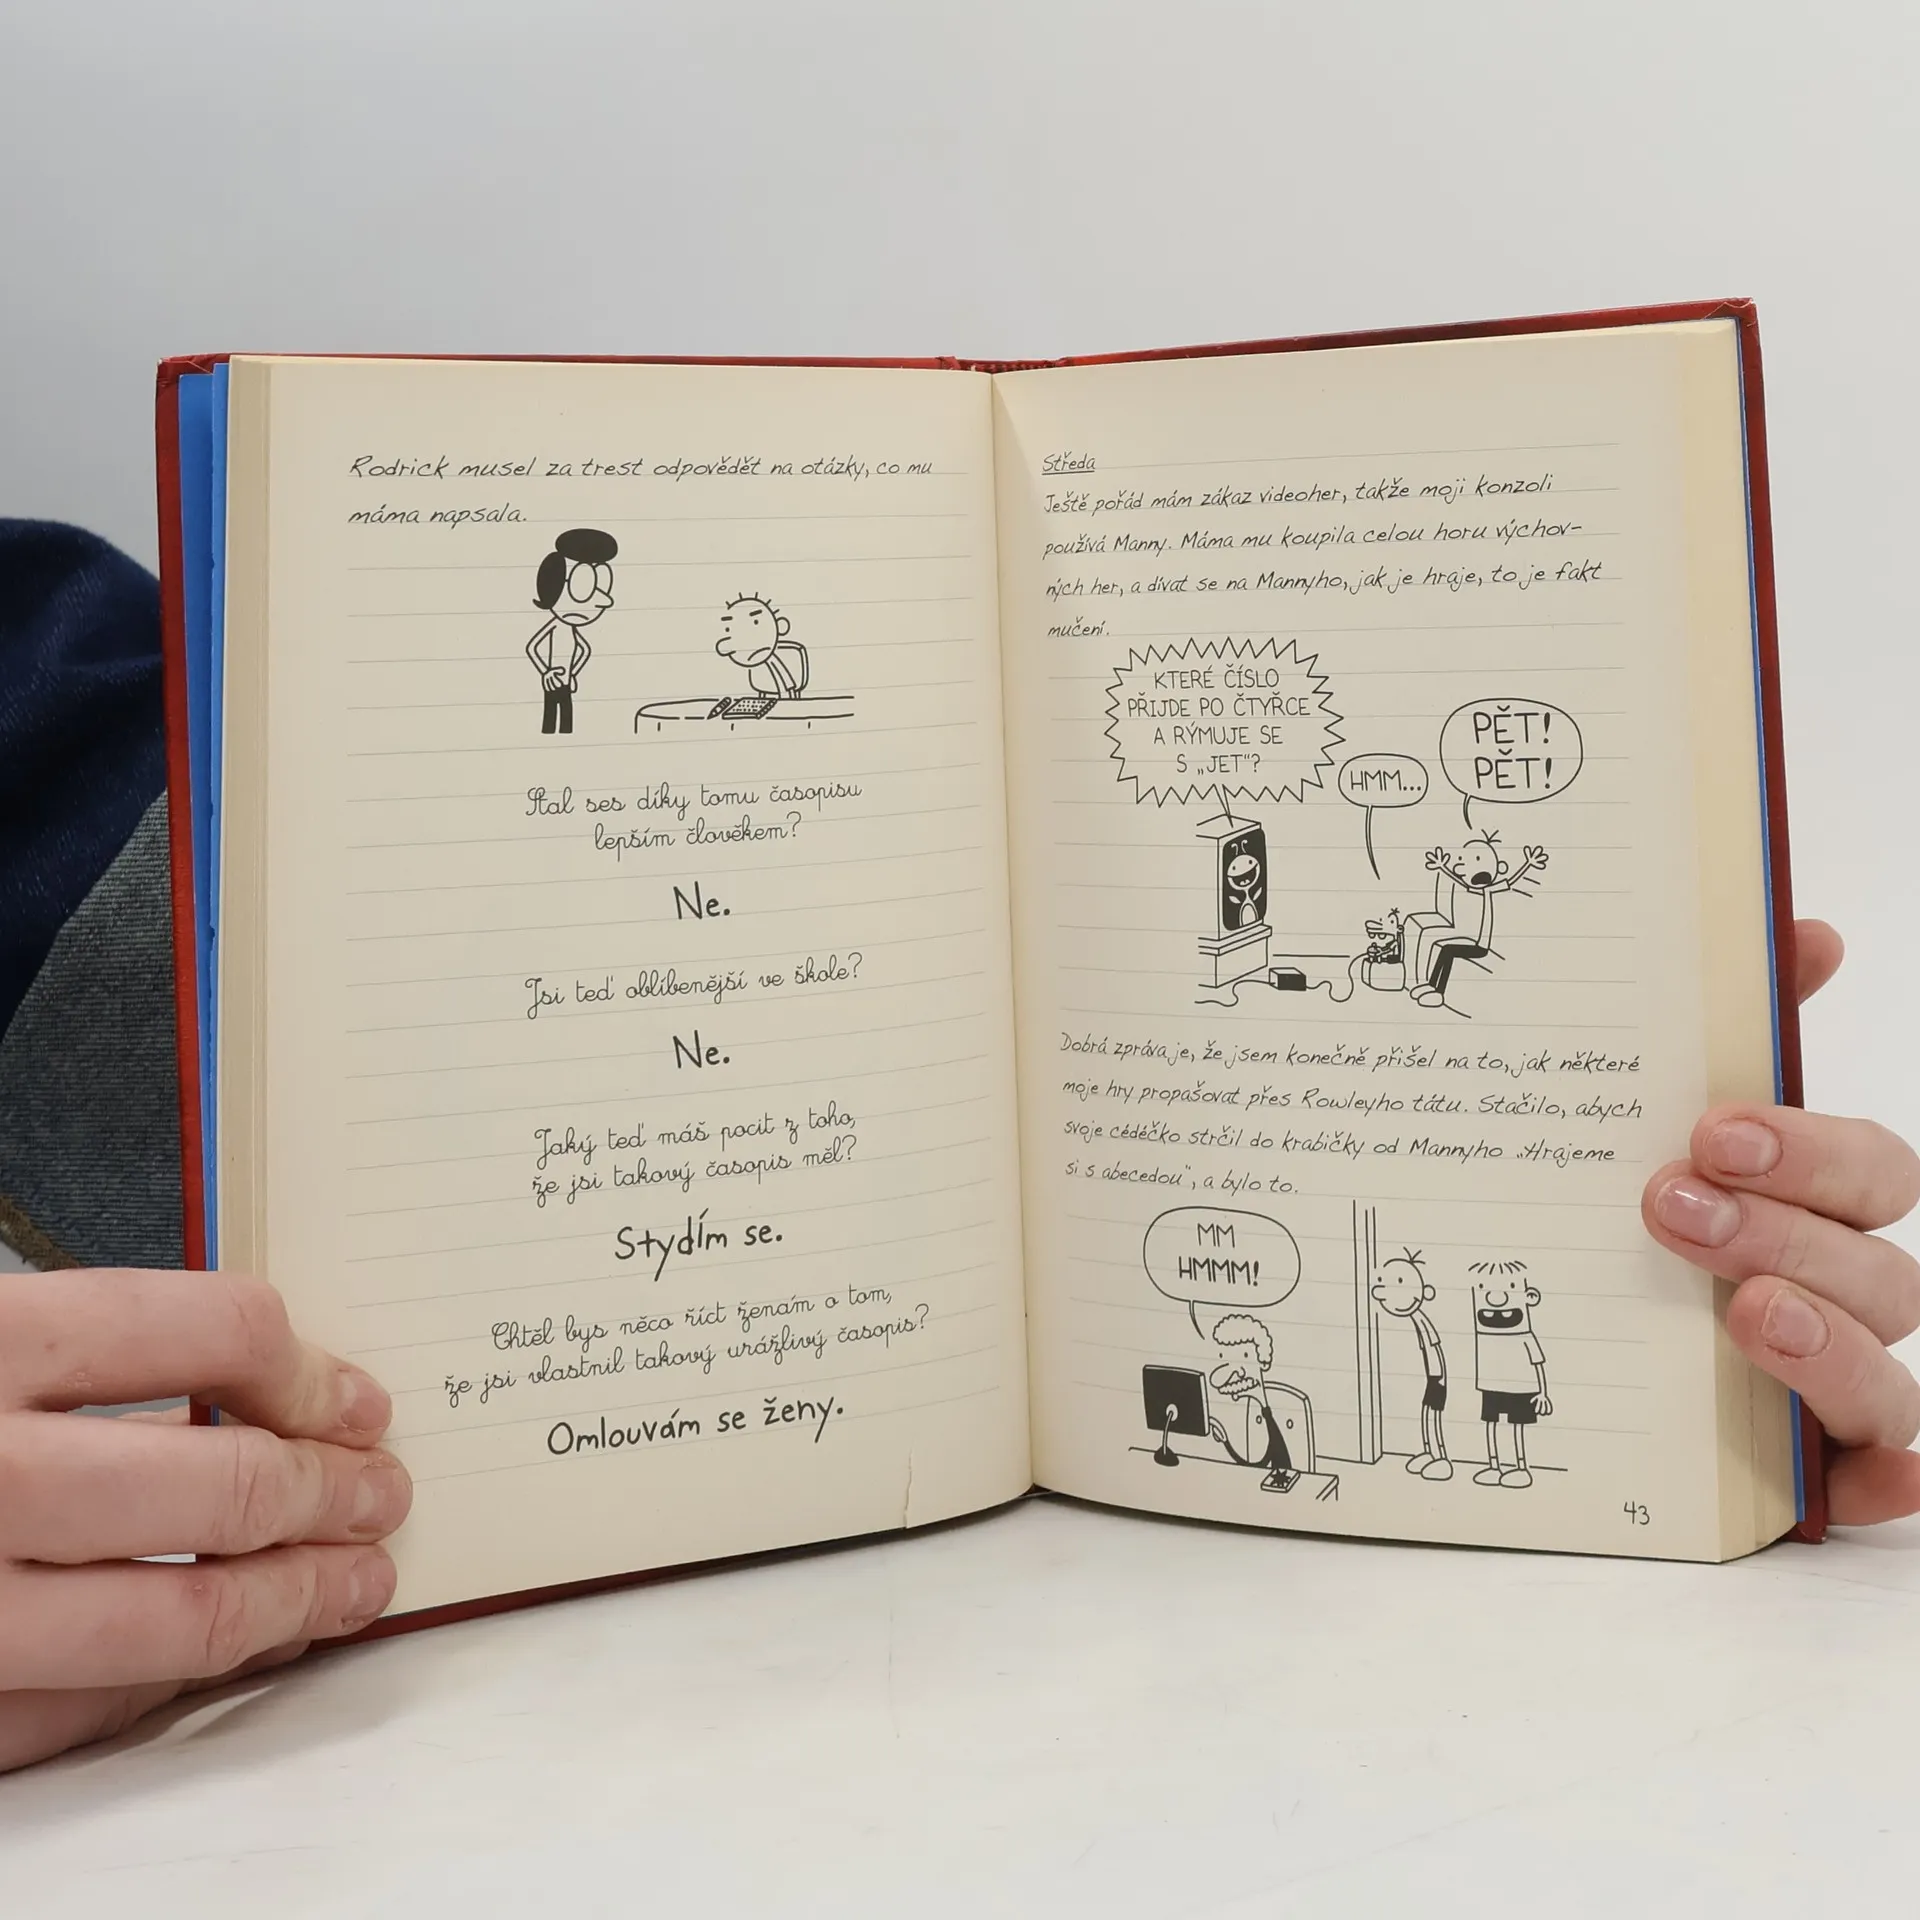 Rodrick musel za trest odpovědět na otázky, co mu
máma napsala.
Stal ses díky tomu časopisu
lepším člověkem?
Ne.
Jsi teď oblíbenější ve škole?
Ne.
Jaký teď máš pocit z toho,
že jsi takový časopis měl?
Stydím se.
Chtěl bys něco říct ženám o tom,
že jsi vlastnil takový urážlivý časopis?
Omlouvám se ženy.
Středa
Ještě pořád mám zákaz videoher, takže moji konzoli
používá Manny. Máma mu koupila celou horu výchov-
ných her, a dívat se na Mannyho, jak je hraje, to je fakt
mučení.
KTERÉ ČÍSLO
PŘIJDE PO ČTYŘCE
A RÝMUJE SE
S „JET“?
HMM...
PĚT!
PĚT!
Dobrá zpráva je, že jsem konečně přišel na to, jak některé
moje hry propašovat přes Rowleyho tátu. Stačilo, abych
svoje cédéčko strčil do krabičky od Mannyho „Hrajeme
si s abecedou“, a bylo to.
MM
HMMM!
43